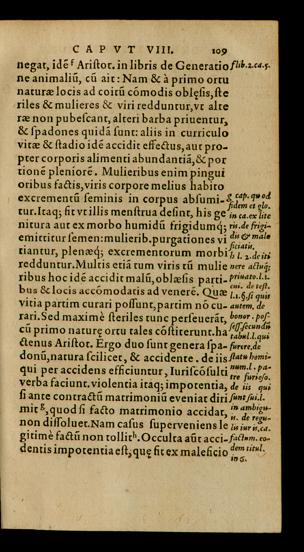 CAPVT VIII. 109
negat, idẽ ᶠ Aristot. in libris de Generatio
ne animaliũ, cũ ait: Nam & à primo ortu
naturæ locis ad coitũ cõmodis oblęsis, ste
riles & mulieres & viri redduntur, vt alte
ræ non pubescant, alteri barba priuentur,
& spadones quidã sunt: aliis in curriculo
vitæ & stadio idẽ accidit effectus, aut pro-
pter corporis alimenti abundantiã, & por
tionẽ pleniorẽ. Mulieribus enim pingui
oribus factis, viris corpore melius habito
excrementũ seminis in corpus absumi-
tur. Itaq; fit vt illis menstrua desint, his ge
nitura aut ex morbo humidũ frigidumq;
emittitur semen: mulierib. purgationes vi
tiantur, plenæq; excrementorum morbi
redduntur. Multis etiã tum viris tũ mulie
ribus hoc idẽ accidit malũ, oblæsis parti-
bus & locis accõmodatis ad venerẽ. Quæ
vitia partim curari possunt, partim nõ cu-
rari. Sed maximè steriles tunc perseuerãt,
cũ primo naturę ortu tales cõstiterunt. ha
ctenus Aristot. Ergo duo sunt genera spa-
donũ, natura scilicet, & accidente. de iis
qui per accidens efficiuntur, Iuriscõsulti
verba faciunt. violentia itaq; impotentia,
si ante contractũ matrimoniũ eueniat diri
mit ᵍ, quod si facto matrimonio accidat,
non dissoluet. Nam casus superueniens le
gitimè factũ non tollit ʰ. Occulta aũt acci-
dentis impotentia est, quę fit ex maleficio
f lib. 2. ca. 5.
g cap. quod
fidem et glo.
in ca. ex lite
ris. de frigi-
dis & male
ficiatis.
h l. 2. de iti
nere actuq;
priuato. l. 1.
cui. de test.
l. 1. §. si quis
autem. de
bonor. pos-
sess. secundũ
tabul. l. qui
furere. de
statu homi-
num. l. pa-
tre furioso.
de iis qui
sunt sui. l.
in ambigu-
is. de regu-
lis iuris, ca.
factum. eo-
dem titul.
in 6.